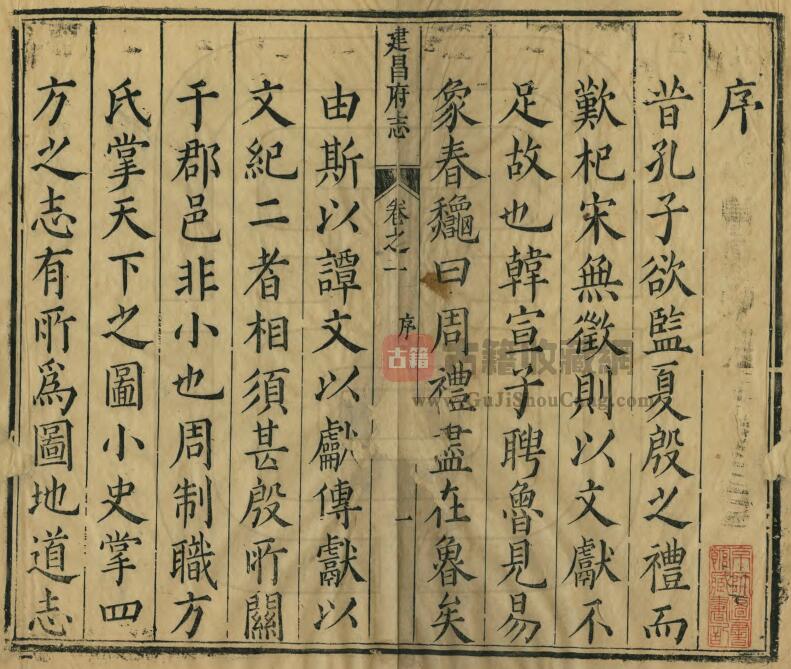 序
昔孔子欲監夏殷之禮而
歎杞宋無徵則以文獻不
足故也韓宣子聘魯見易
象春龝曰周禮盡在魯矣
建昌府志
卷之一
序
一
由斯以譚文以獻傳獻以
文紀二者相須甚殷所關
于郡邑非小也周制職方
氏掌天下之圖小史掌四
方之志有所爲圖地道志
古籍
古籍收藏網
www.GuJiShouCang.com